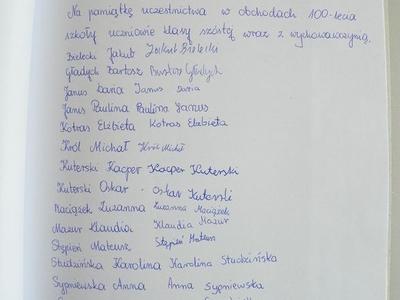 Na pamiątkę uczestnictwa w obchodach 100-lecia
szkoły uczniowie klasy szóstej wraz z wychowawczynią.
Bielecki Jakub Jakub Bielecki
Gładych Bartosz Bartosz Gładych
Janus Daria Janus Daria
Janus Paulina Paulina Janus
Kotras Elżbieta Kotras Elżbieta
Król Michał Król Michał
Kuterski Kacper Kacper Kuterski
Kuterski Oskar · Oskar Kuterski
Naciążek Zuzanna Zuzanna Naciążek
Mazur Klaudia Klaudia Mazur
Stępień Mateusz Stępień Mateusz
Studzińska Karolina Karolina Studzińska
Sypniewska Anna Anna Sypniewska